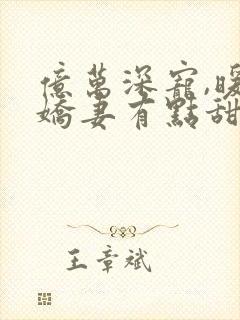 億萬深寵,暖
嬌妻有點甜
王章斌